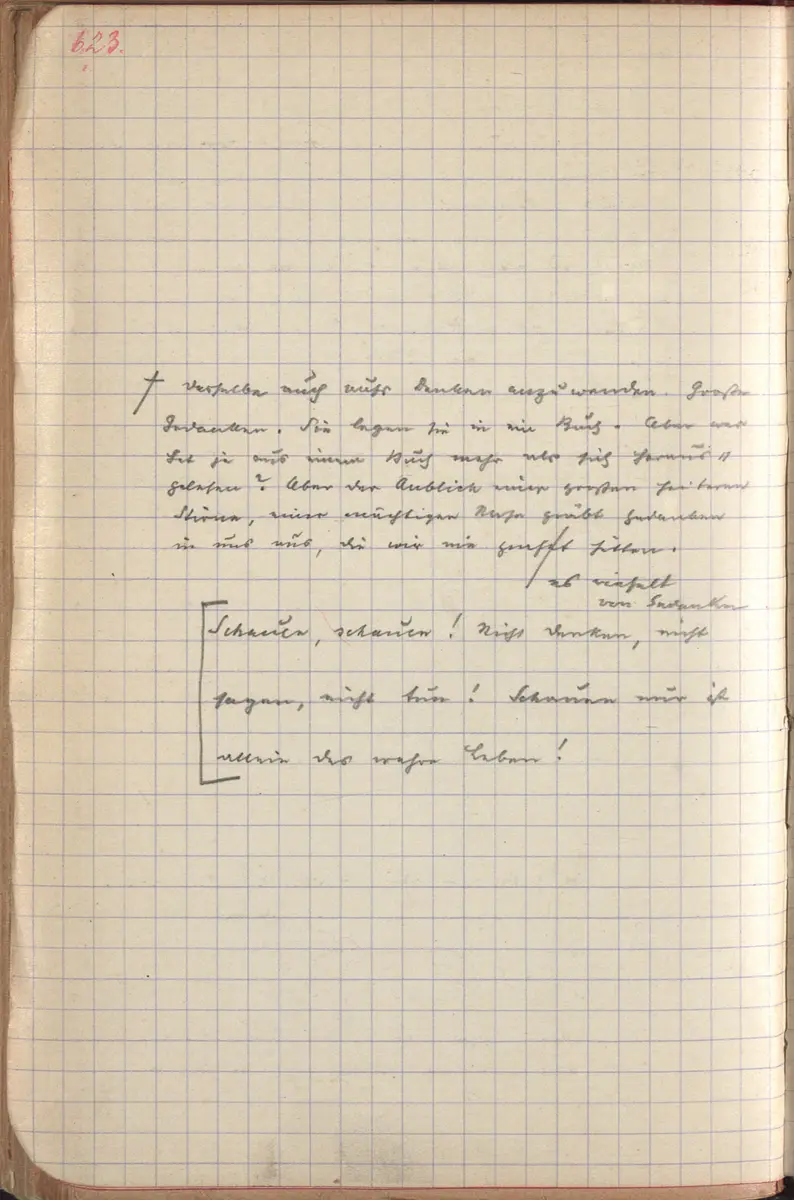 623.
† dasselbe auch aufs Denken anzuwenden. Große
Gedanken. Sie legen sie in ein Buch. Aber wer
hat je aus einem Buch mehr als sich heraus„
gelesen? Aber der Anblick einer großen heiteren
Stirne, einer mächtigen Nase gräbt Gedanken
in uns aus, die wir nie hätten.
von Gedanken
Schauen, schauen! Nicht denken, nicht
sagen, nicht tun! Schauen nur ist
allein das wahre Leben!